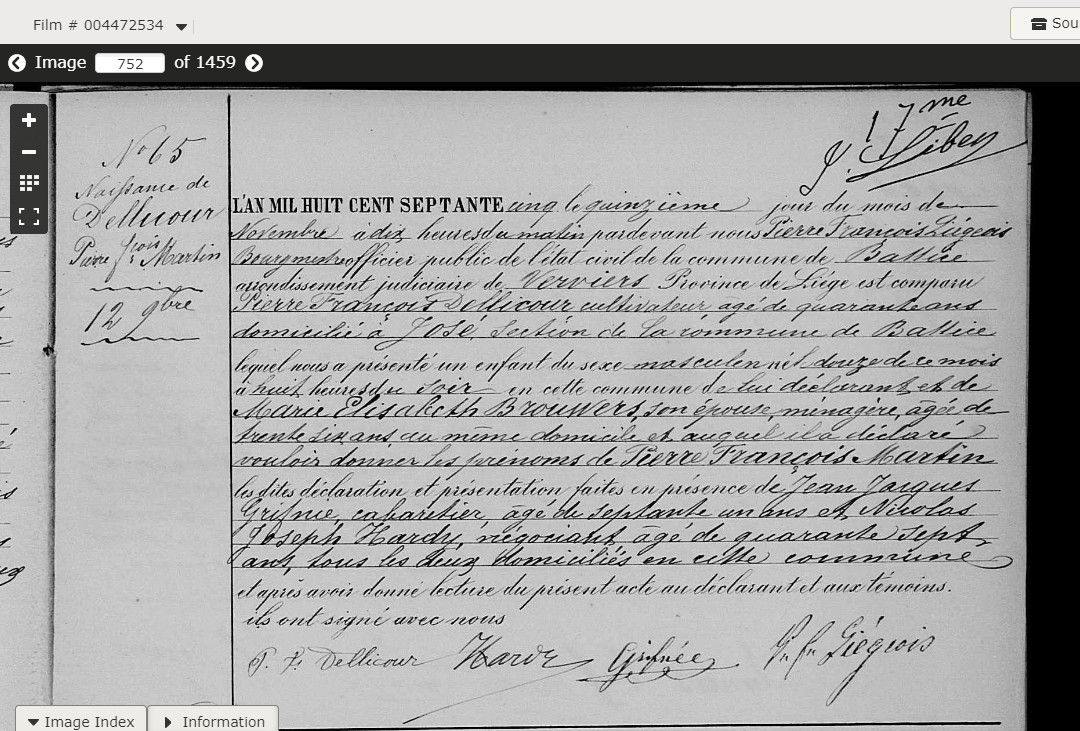 Film # 004472534
Sou
Image 752 of 1459
17me
No 65
Naissance de
Dellicour
Pierre fçois Martin
12 9bre
L'AN MIL HUIT CENT SEPTANTE cinq le quinzième jour du mois de
Novembre à dix heures du matin pardevant nous Pierre François Liégeois
Bourgmestre officier public de l'état civil de la commune de Battice
arrondissement judiciaire de Verviers Province de Liége est comparu
Pierre François Dellicour cultivateur agé de quarante ans
domicilié à José, Section de la commune de Battice
lequel nous a présenté un enfant du sexe masculin né le douze de ce mois
à huit heures du soir en cette commune de lui déclarant et de
Marie Elisabeth Brouwers, son épouse, ménagère, âgée de
trente six ans au même domicile et auquel il a déclaré
vouloir donner les prénoms de Pierre François Martin
les dites déclaration et présentation faites en présence de Jean Jacques
Grifnée, cabaretier, âgé de septante un ans et Nicolas
Joseph Hardy, négociant, âgé de quarante sept
ans, tous les deux domiciliés en cette commune
et après avoir donné lecture du présent acte au déclarant et aux témoins.
ils ont signé avec nous
P. F. Dellicour Hardy Grifnée P. f. Liégeois
Image Index
Information